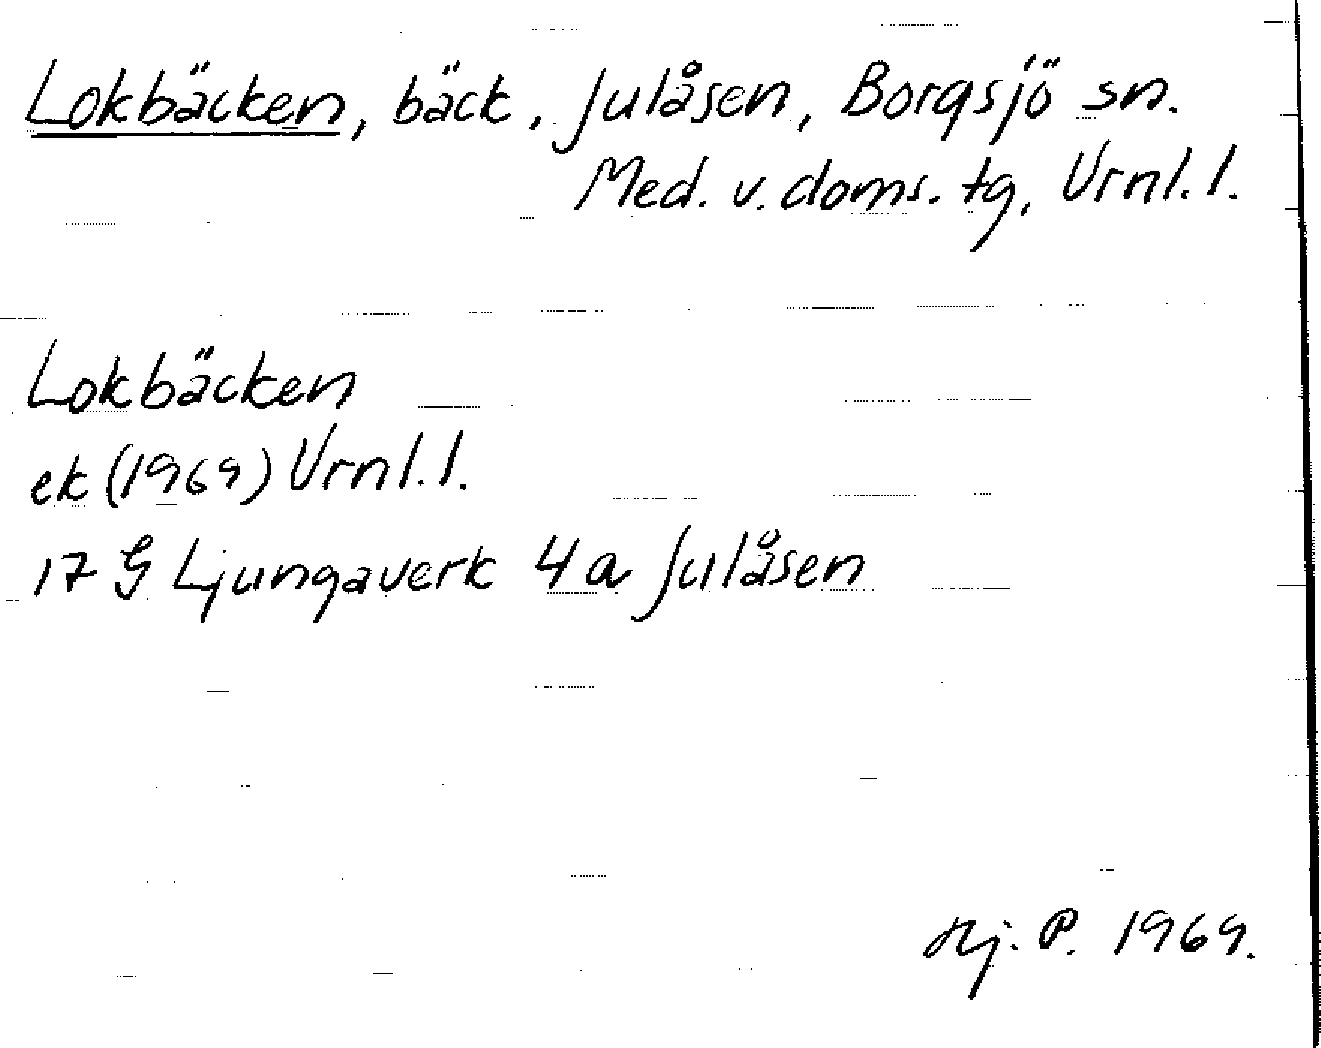 Lokbäcken, bäck, Julåsen, Borgsjö sn.
Med. v. doms. tg, Vrnl. l.
Lokbäcken
ek (1969) Vrnl. l.
17 G Ljungaverk 4 a Julåsen
Hj. P. 1969.